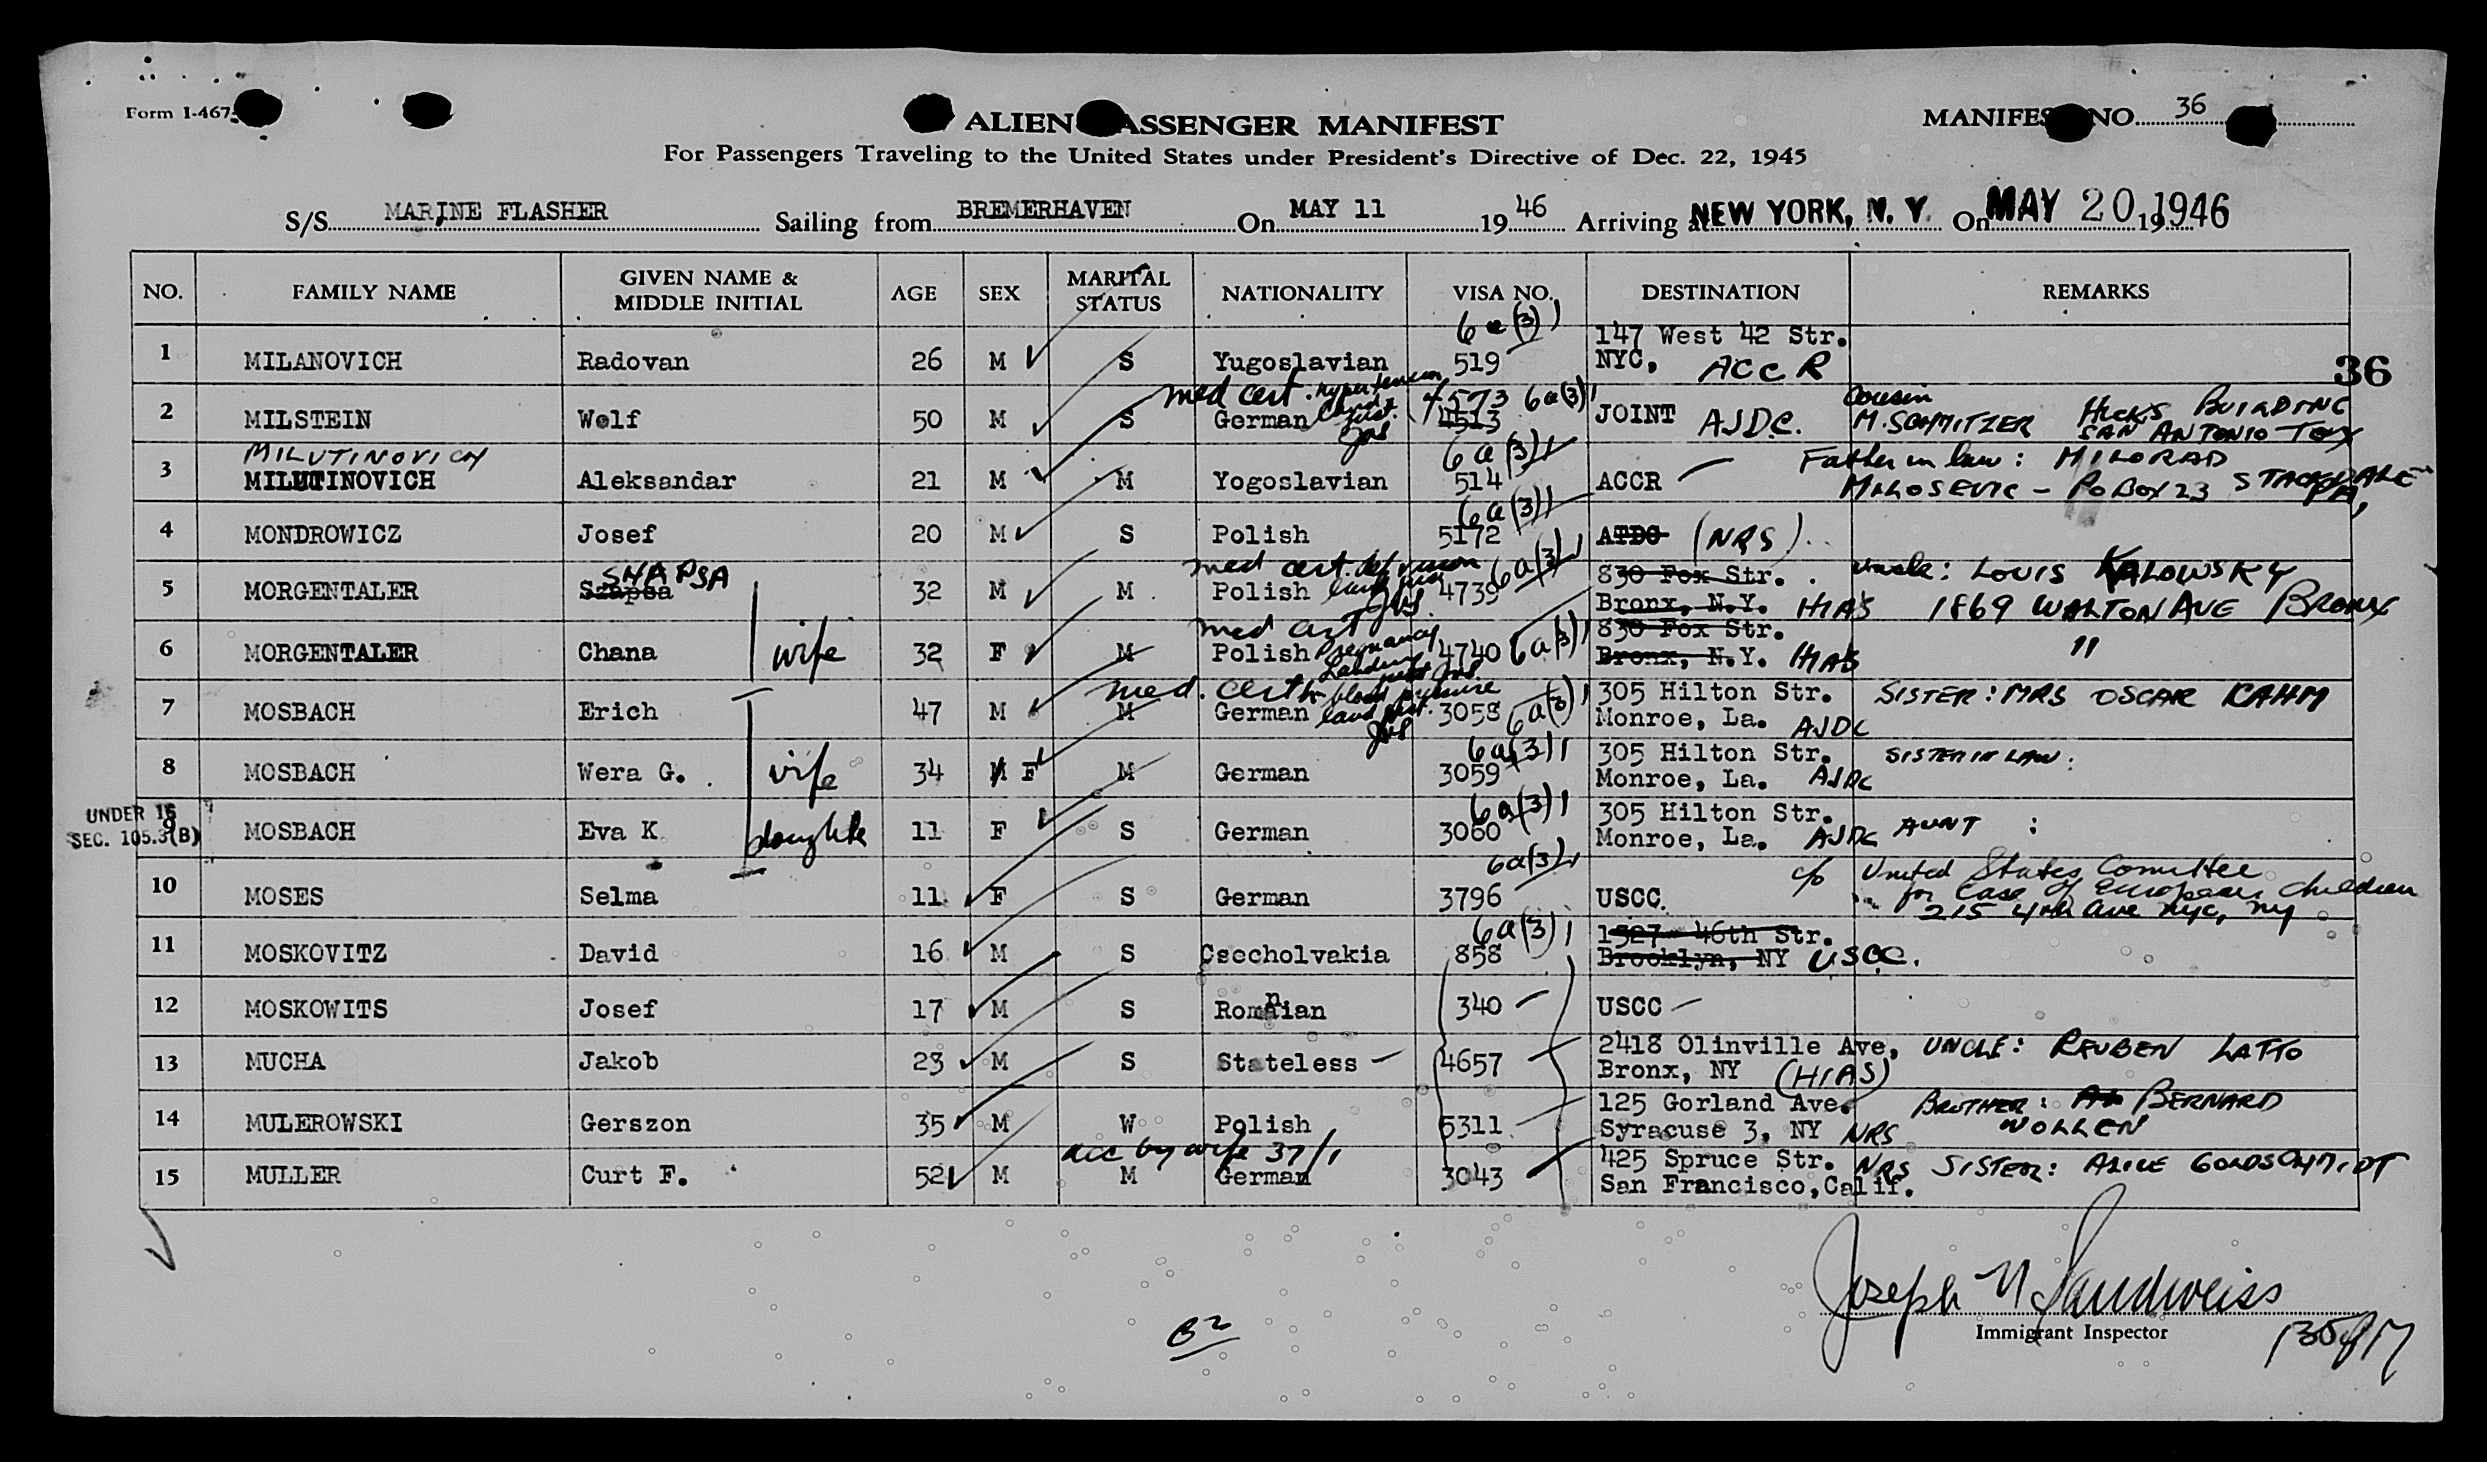 Form I-467
ALIEN PASSENGER MANIFEST
MANIFEST NO. 36
For Passengers Traveling to the United States under President's Directive of Dec. 22, 1945
S/S MARINE FLASHER Sailing from BREMERHAVEN On MAY 11 19 46 Arriving at NEW YORK, N. Y. On MAY 20 19 1946
NO. FAMILY NAME GIVEN NAME & MIDDLE INITIAL AGE SEX MARITAL STATUS NATIONALITY VISA NO. DESTINATION REMARKS
6a(3)
147 West 42 Str.
1 MILANOVICH Radovan 26 M S Yugoslavian 519 NYC, ACCR
36
med cert. hypertension 4573 6a(3) Cousin
2 MILSTEIN Wolf 50 M S German 4513 JOINT AJDC. M. SCHMITZER HICKS BUILDING
SAN ANTONIO TEX
MILUTINOVICH 6a(3) Father in law: MILORAD
3 MILUTINOVICH Aleksandar 21 M M Yogoslavian 514 ACCR MILOSEVIC - PO BOX 23 STACKDALE PA,
6a(3)
4 MONDROWICZ Josef 20 M S Polish 5172 (NRS)
SHAPSA med cert. def vision 6a(3) 830 Fox Str. Uncle: LOUIS KALOWSKY
5 MORGENTALER Szapsa 32 M M Polish 4739 Bronx, N.Y. HIAS 1869 WALTON AVE BRONX
med cert Pregnancy 830 Fox Str.
6 MORGENTALER Chana wife 32 F M Polish 4740 6a(3) Bronx, N.Y. HIAS "
med. cert blood pressure 305 Hilton Str. SISTER: MRS OSCAR KAHM
7 MOSBACH Erich 47 M M German 3058 6a(3) Monroe, La. AJDC
6a(3) 305 Hilton Str. SISTER IN LAW:
8 MOSBACH Wera G. wife 34 M F M German 3059 Monroe, La. AJDC
UNDER 16 6a(3) 305 Hilton Str.
SEC. 105.3(B) 9 MOSBACH Eva K daughter 11 F S German 3060 Monroe, La. AJDC AUNT :
6a(3) c/o United States Committee
10 MOSES Selma 11 F S German 3796 USCC. for Case of European Children
215 4th Ave NYC, NY
6a(3) 1327 46th Str.
11 MOSKOVITZ David 16 M S Csecholvakia 858 Brooklyn, NY USCC.
12 MOSKOWITS Josef 17 M S Romanian 340 USCC
2418 Olinville Ave, UNCLE: REUBEN LATTO
13 MUCHA Jakob 23 M S Stateless 4657 Bronx, NY (HIAS)
125 Gorland Ave. BROTHER: BERNARD
14 MULEROWSKI Gerszon 35 M W Polish 5311 Syracuse 3, NY NRS NOLLEN
acc by wife 37/1 425 Spruce Str. NRS SISTER: ALICE GOLDSCHMIDT
15 MULLER Curt F. 52 M M German 3043 San Francisco, Calif.
Joseph N Sandweiss
Immigrant Inspector
B2